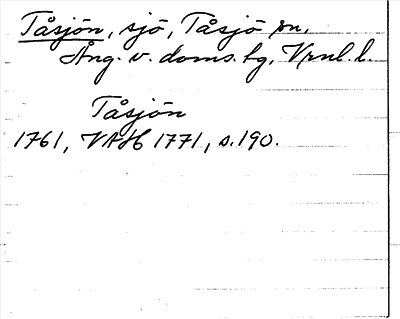 Tåsjön, sjö, Tåsjö sn,
Ång. v. doms. hg, Vrnl. l.
Tåsjön
1761, VAH 1771, s. 190.